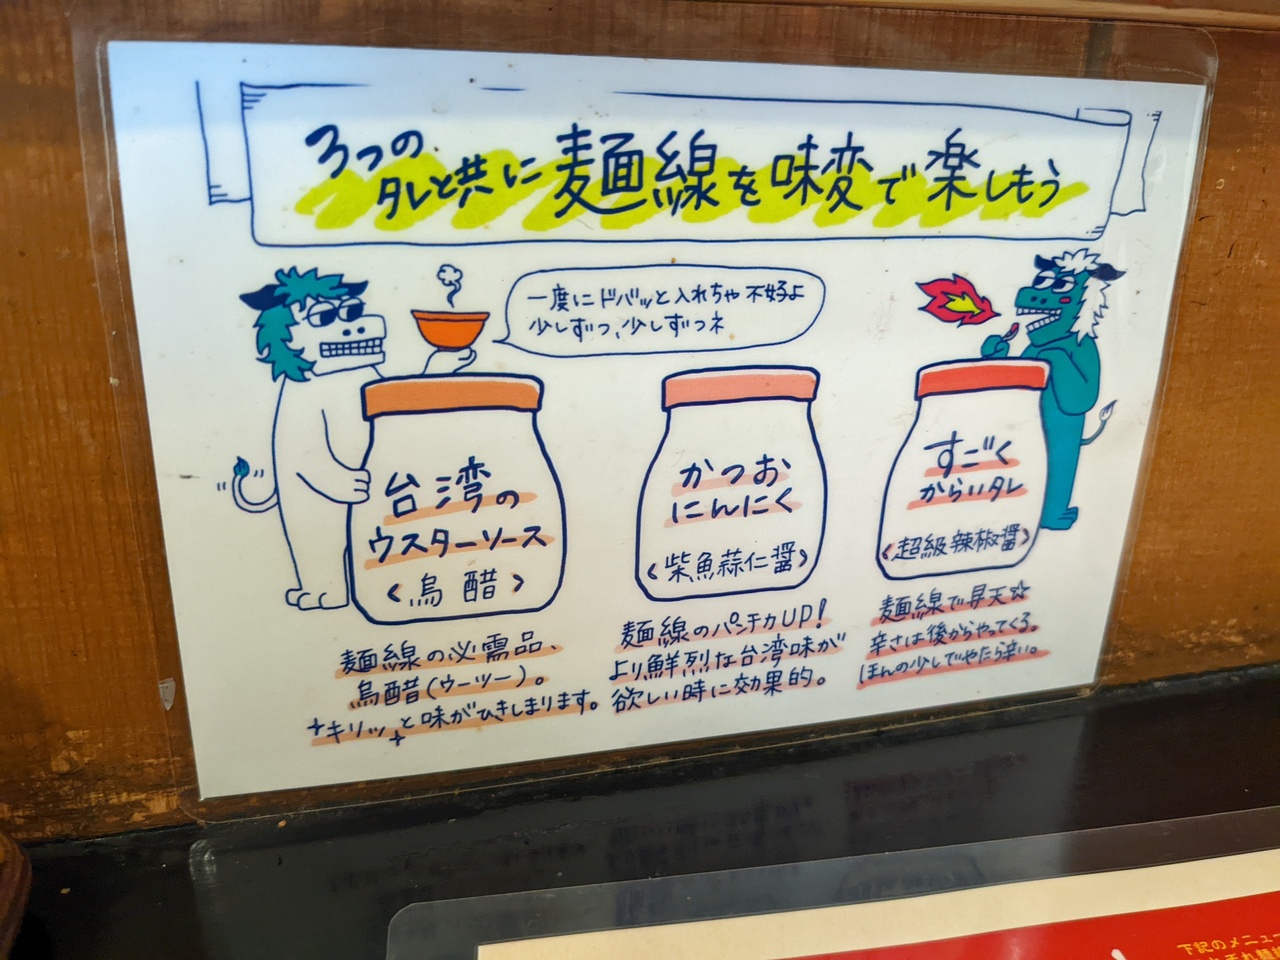 3つの
タレと共に麺線を味変で楽しもう
一度にドバッと入れちゃ不好よ
少しずつ、少しずつネ
台湾の
ウスターソース
〈烏醋〉
麺線の必需品、
烏醋(ウーツー)。
キリッと味がひきしまります。
かつお
にんにく
〈柴魚蒜仁醤〉
麺線のパンチカUP!
より鮮烈な台湾味が
欲しい時に効果的。
すごく
からいタレ
〈超級辣椒醤〉
麺線で昇天☆
辛さは後からやってくる。
ほんの少しでやたら辛い。
下記のメニュー